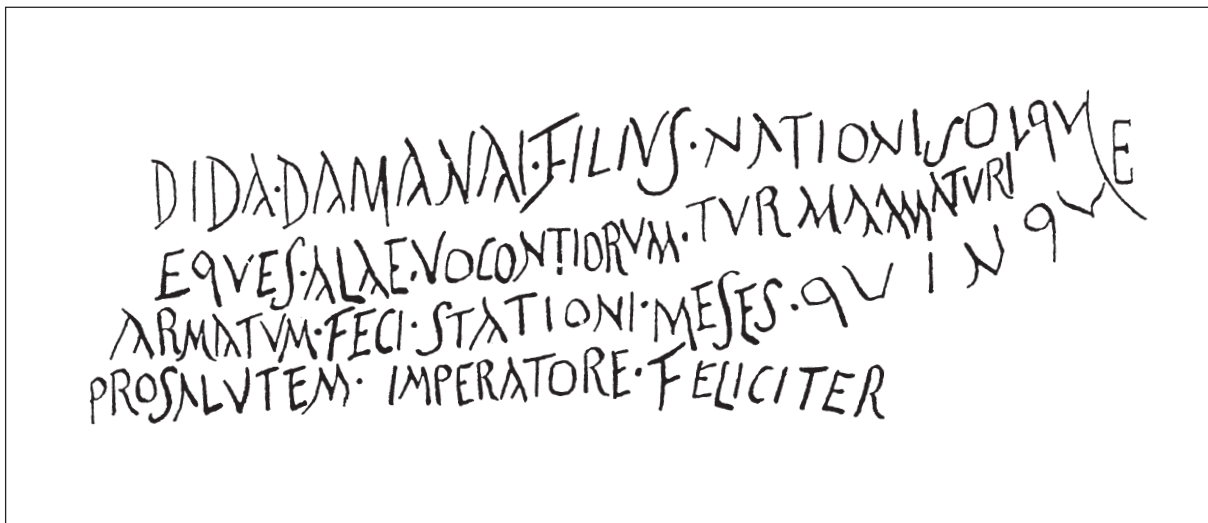 DIDA·DAMANAI·FILIVS·NATIONISOLQVE
EQVES·ALAE·VOCONTIORVM·TVRMAAMATVRI
ARMATVM·FECI·STATIONI·MESES·QVINQVE
PROSALVTEM· IMPERATORE·FELICITER